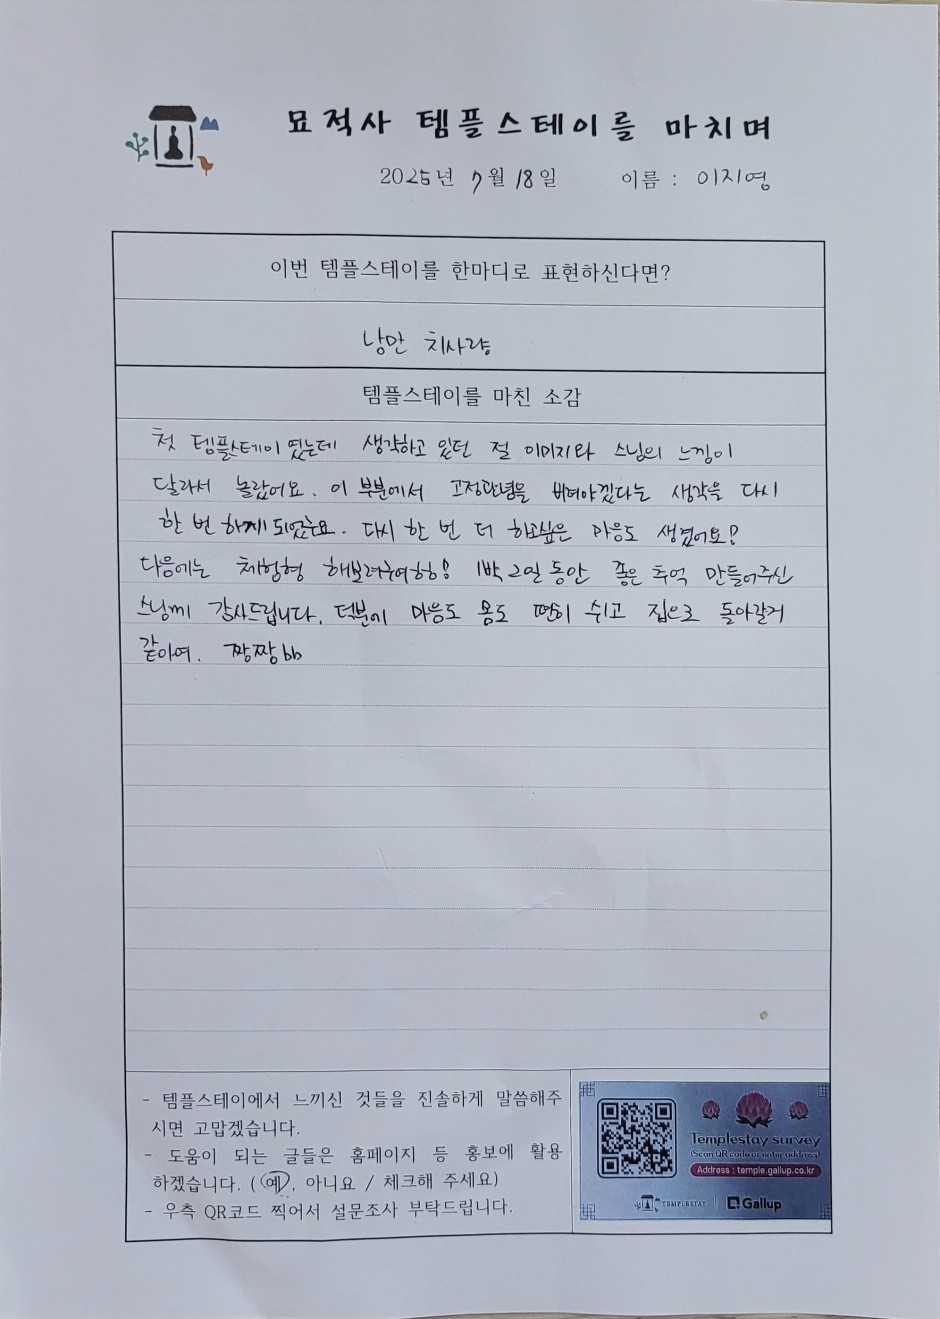 묘적사 템플스테이를 마치며
2025년 7월 18일 이름 : 이지영
이번 템플스테이를 한마디로 표현하신다면?
낭만 치사량
템플스테이를 마친 소감
첫 템플스테이였는데 생각하고 있던 절 이미지와 스님의 느낌이
달라서 놀랐어요. 이 부분에서 고정관념을 버려야겠다는 생각을 다시
한 번 하게 되었구요. 다시 한 번 더 하고싶은 마음도 생겼어요?
다음에는 체험형 해보려구여ㅎㅎ! 1박 2일 동안 좋은 추억 만들어주신
스님께 감사드립니다. 덕분에 마음도 몸도 편히 쉬고 집으로 돌아갈거
같아여. 짱짱bb
- 템플스테이에서 느끼신 것들을 진솔하게 말씀해주
시면 고맙겠습니다.
- 도움이 되는 글들은 홈페이지 등 홍보에 활용
하겠습니다. (예, 아니요 / 체크해 주세요)
- 우측 QR코드 찍어서 설문조사 부탁드립니다.
Templestay survey
(Scan QR code or enter address)
Address : temple.gallup.co.kr
TEMPLESTAY Gallup